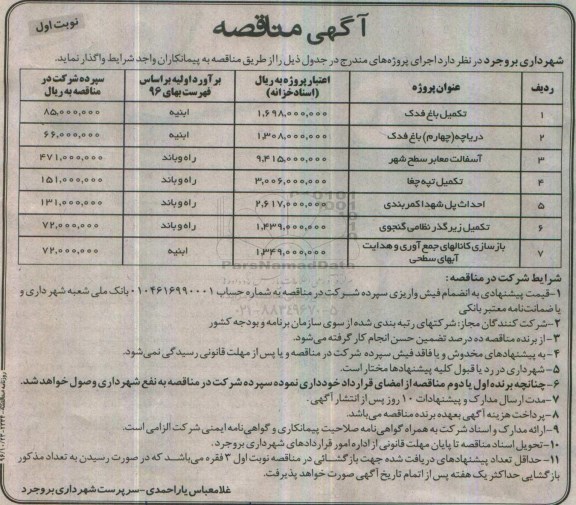 آگهی مناقصه
نوبت اول
شهرداری بروجرد در نظر دارد اجرای پروژه‌های مندرج در جدول ذیل را از طریق مناقصه به پیمانکاران واجد شرایط واگذار نماید.
ردیف عنوان پروژه اعتبار پروژه به ریال (اسناد خزانه) برآورد اولیه براساس فهرست بهای ۹۶ سپرده شرکت در مناقصه به ریال
۱ تکمیل باغ فدک ۱,۶۹۸,۰۰۰,۰۰۰ ابنیه ۸۵,۰۰۰,۰۰۰
۲ دریاچه (چهارم) باغ فدک ۱,۳۰۸,۰۰۰,۰۰۰ ابنیه ۶۶,۰۰۰,۰۰۰
۳ آسفالت معابر سطح شهر ۹,۴۱۵,۰۰۰,۰۰۰ راه و باند ۴۷۱,۰۰۰,۰۰۰
۴ تکمیل تپه چغا ۳,۰۰۶,۰۰۰,۰۰۰ راه و باند ۱۵۱,۰۰۰,۰۰۰
۵ احداث پل شهدا کمربندی ۲,۶۱۷,۰۰۰,۰۰۰ راه و باند ۱۳۱,۰۰۰,۰۰۰
۶ تکمیل زیرگذر نظامی گنجوی ۱,۴۳۹,۰۰۰,۰۰۰ راه و باند ۷۲,۰۰۰,۰۰۰
۷ بازسازی کانالهای جمع آوری و هدایت آبهای سطحی ۱,۳۴۹,۰۰۰,۰۰۰ ابنیه ۷۲,۰۰۰,۰۰۰
ParsNamadData
۰۲۱-۸۸۳۴۹۶۷۰-۵
شرایط شرکت در مناقصه :
۱-قیمت پیشنهادی به انضمام فیش واریزی سپرده شرکت در مناقصه به شماره حساب ۰۱۰۴۶۱۶۹۹۰۰۰۱ بانک ملی شعبه شهرداری و
یا ضمانت‌نامه معتبر بانکی
۲-شرکت کنندگان مجاز: شرکتهای رتبه بندی شده از سوی سازمان برنامه و بودجه کشور
۳- از برنده مناقصه ده درصد تضمین حسن انجام کار گرفته می‌شود.
۴- به پیشنهادهای مخدوش و یا فاقد فیش سپرده شرکت در مناقصه و یا پس از مهلت قانونی رسیدگی نمی‌شود.
۵-شهرداری در رد یا قبول کلیه پیشنهادها مختار است.
۶-چنانچه برنده اول یا دوم مناقصه از امضای قرارداد خودداری نموده سپرده شرکت در مناقصه به نفع شهرداری وصول خواهد شد.
۷-مدت ارسال مدارک و پیشنهادات ۱۰ روز پس از انتشار آگهی.
۸-پرداخت هزینه آگهی بعهده برنده مناقصه می‌باشد.
۹-ارائه مدارک و اسناد شرکت به همراه گواهی‌نامه صلاحیت پیمانکاری و گواهی‌نامه ایمنی شرکت الزامی است.
۱۰-تحویل اسناد مناقصه تا پایان مهلت قانونی از اداره امور قراردادهای شهرداری بروجرد.
۱۱-حداقل تعداد پیشنهادهای دریافت شده جهت بازگشائی در مناقصه نوبت اول ۳ فقره می‌باشد که در صورت رسیدن به تعداد مذکور
بازگشایی حداکثر یک هفته پس از اتمام تاریخ آگهی صورت خواهد پذیرفت.
غلامعباس یاراحمدی-سرپرست شهرداری بروجرد